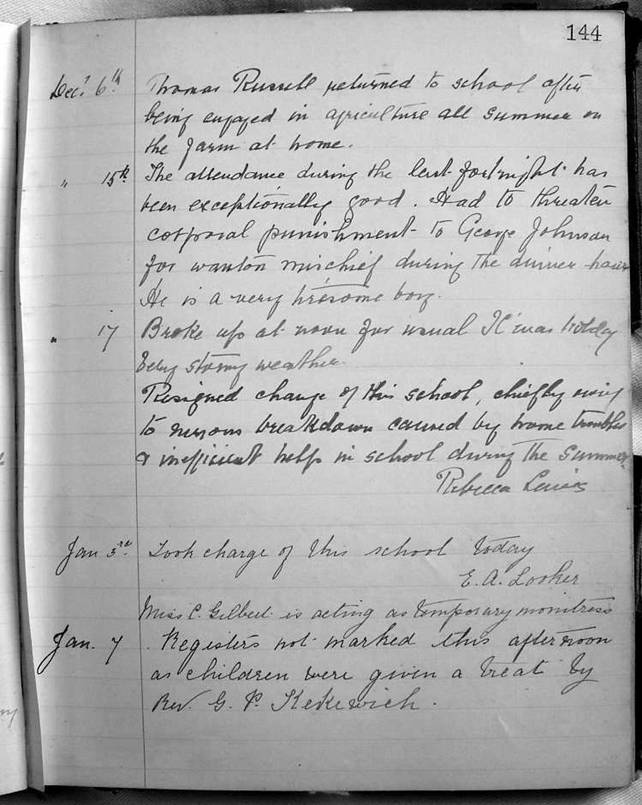 144
Decr 6th Thomas Russell returned to school after
being engaged in agriculture all summer on
the farm at home.
" 15th The attendance during the last fortnight has
been exceptionally good. Had to threaten
corporal punishment to George Johnson
for wanton mischief during the dinner hour
He is a very tiresome boy.
" 17 Broke up at noon for usual X'mas holiday
Very stormy weather.
Resigned charge of this school, chiefly owing
to nervous breakdown caused by home troubles
& inefficient help in school during the Summer
Rebecca Lewis
Jan 3rd Took charge of this school today
E. A. Looker
Miss C. Gilbert is acting as temporary monitress
Jan. 7 . Registers not marked this afternoon
as children were given a treat by
Rev. G. P. Kekewich.